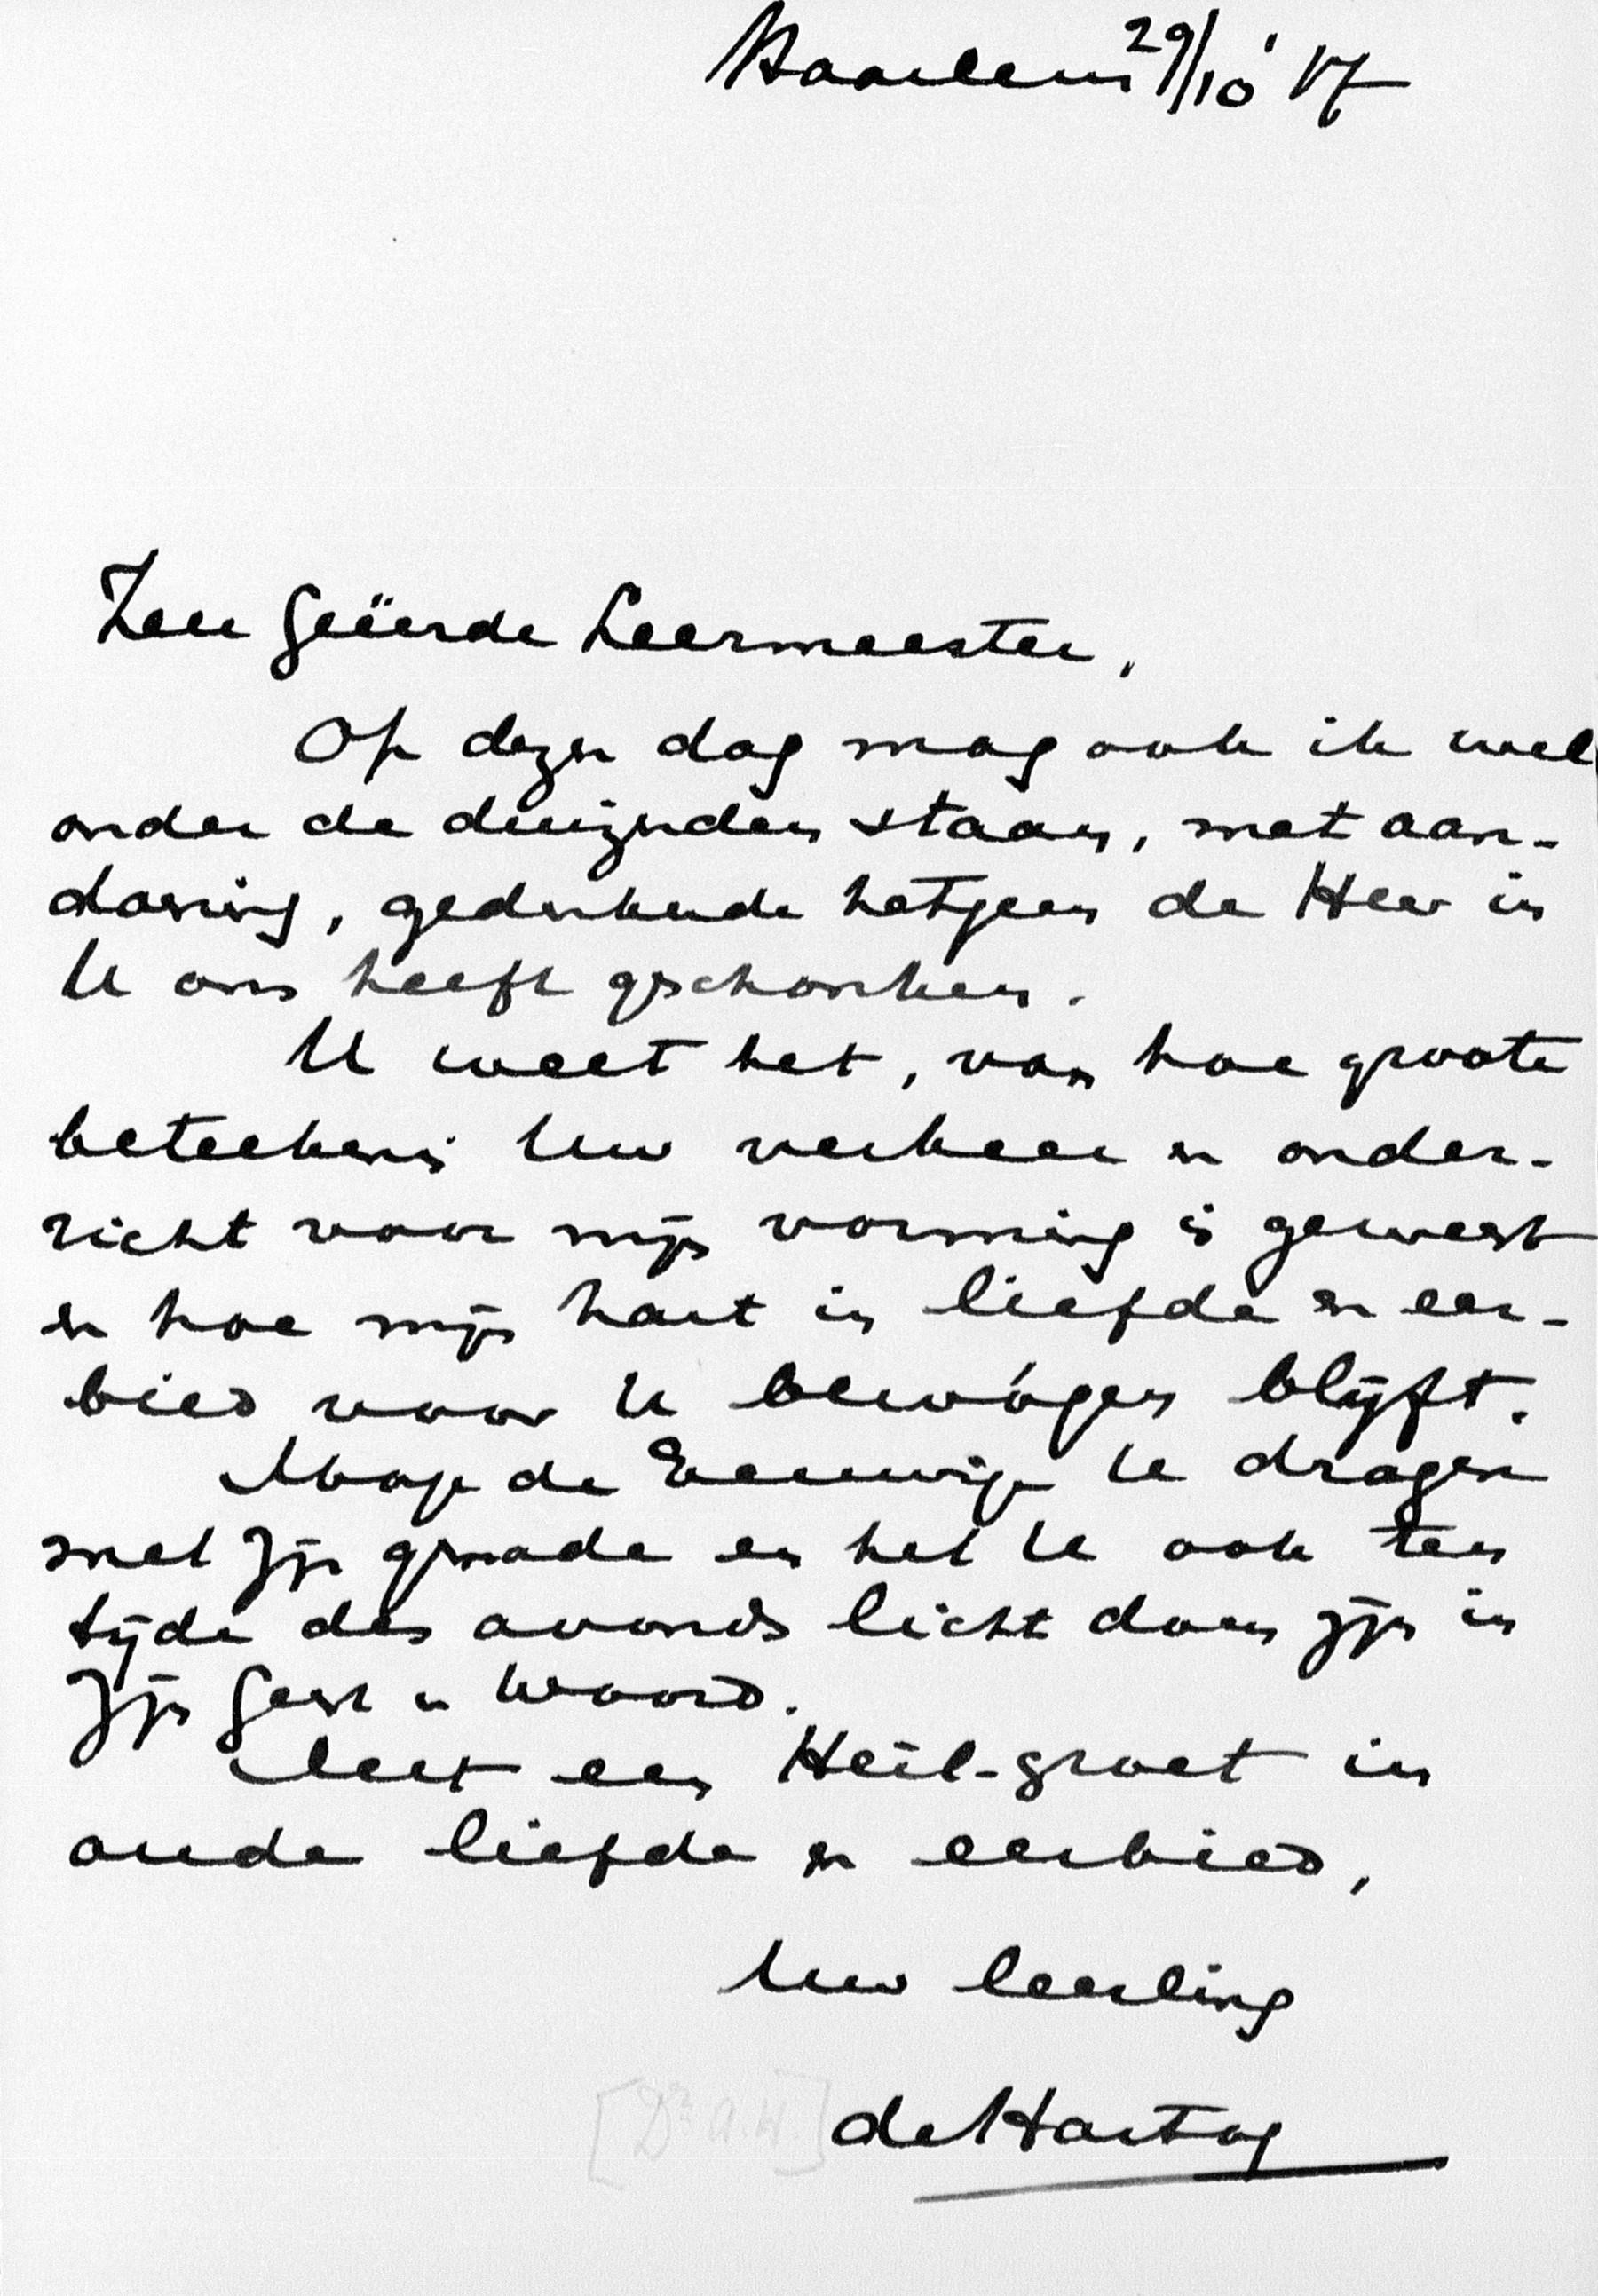 Haarlem 29/10 '17
Zeer Geëerde Leermeester,
Op dezen dag mag ook ik wel
onder de duizenden staan, met aan-
doening, gedenkende hetgeen de Heer in
U ons heeft geschonken.
U weet het, van hoe groote
beteekenis Uw verkeer en onder-
richt voor mijn vorming is geweest
en hoe mijn hart in liefde en eer-
bied voor U bewogen blijft.
Moge de Eeuwige U dragen
met Zijn genade en het U ook ten
tijde des avonds licht doen zijn in
Zijn Geest en Woord.
Met een Heil-groet in
oude liefde en eerbied,
Uw leerling
[Dr. A.H.] de Hartog